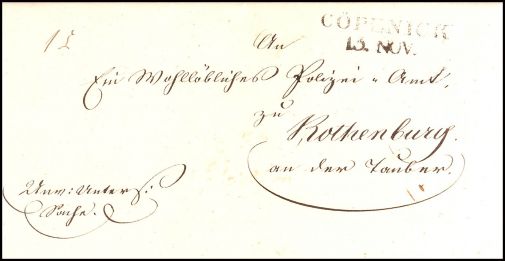 CÖPENICK
13. NOV.
An
Ein Wohllöbliches Polizei-Amt,
zu
Rothenburg.
an der Tauber.
Unters:
Sache.